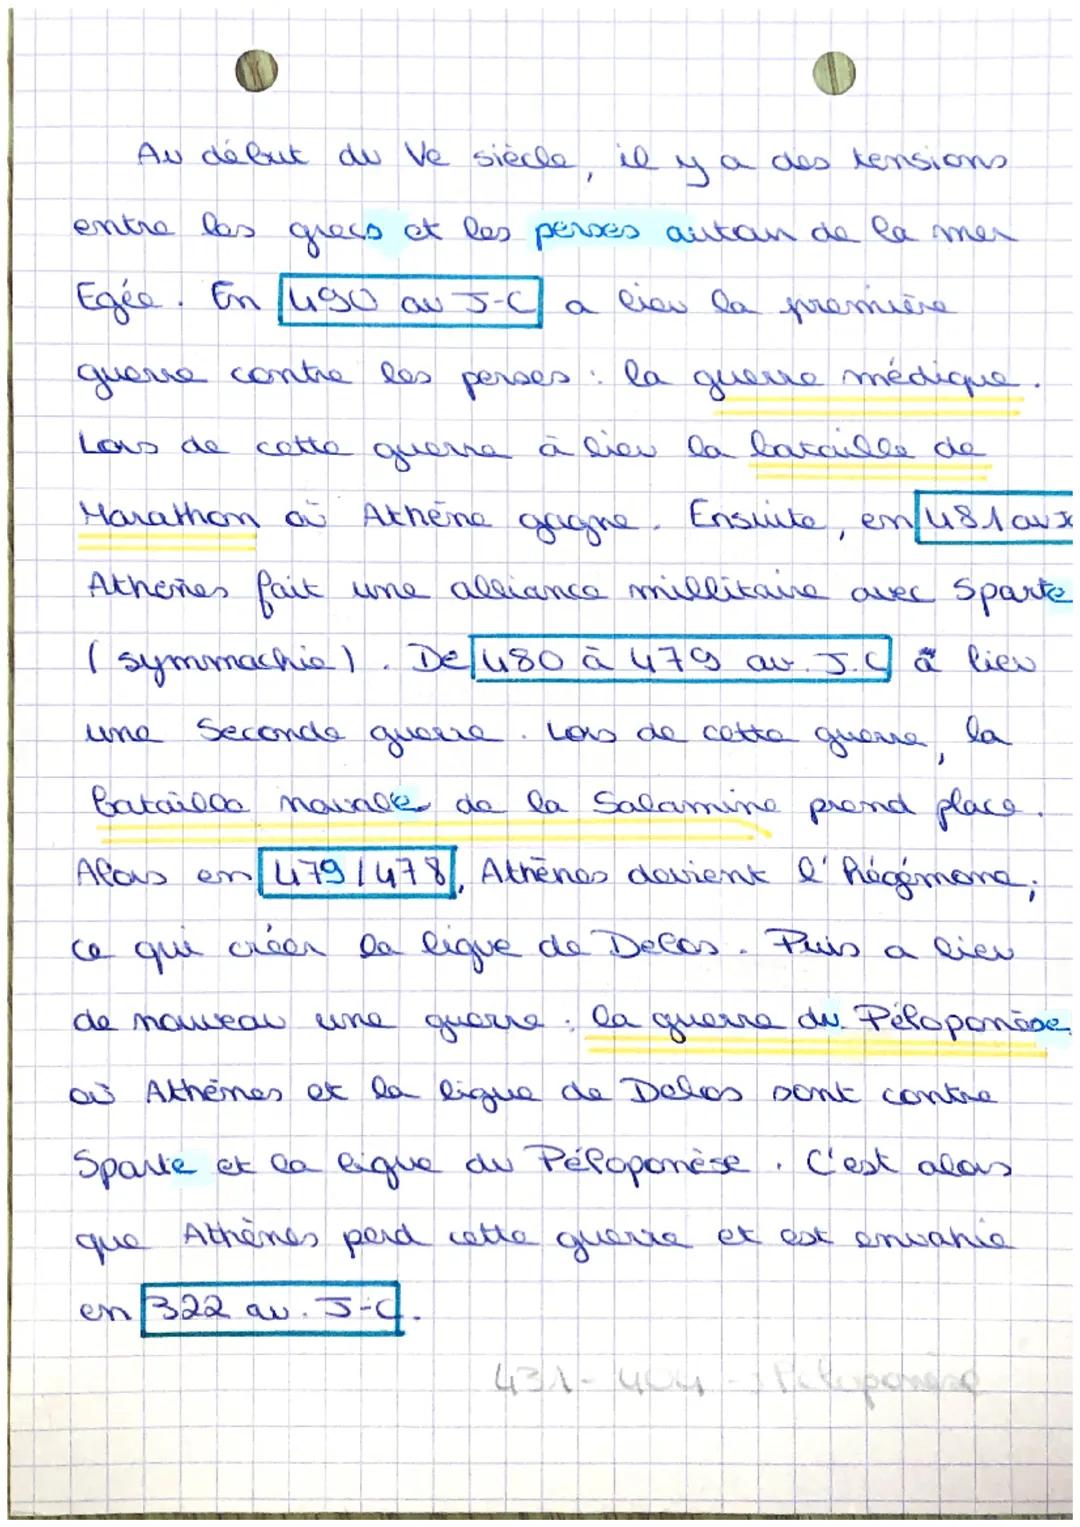 Au début du Ve siècle, il y a des tensions
entre les grecs et les perses autour de la mer
Egée. En 490 av J-C a lieu la première
guerre contre les perses : la guerre médique.
Lors de cette guerre à lieu la bataille de
Marathon où Athène gagne. Ensuite, en 481 av J-C
Athènes fait une alliance millitaire avec Sparte
(symmachie). De 480 à 479 av. J.C à lieu
une Seconde guerre. Lors de cette guerre, la
bataille navale de la Salamine prend place.
Alors en 479/478, Athènes devient l'hégémone,
ce qui créer la ligue de Delos. Puis a lieu
de nouveau une guerre : la guerre du Péloponèse
où Athènes et la ligue de Delos sont contre
Sparte et la ligue du Péloponèse. C'est alors
que Athènes perd cette guerre et est envahie
en 322 av. J-C.
431-404 → Péloponèse